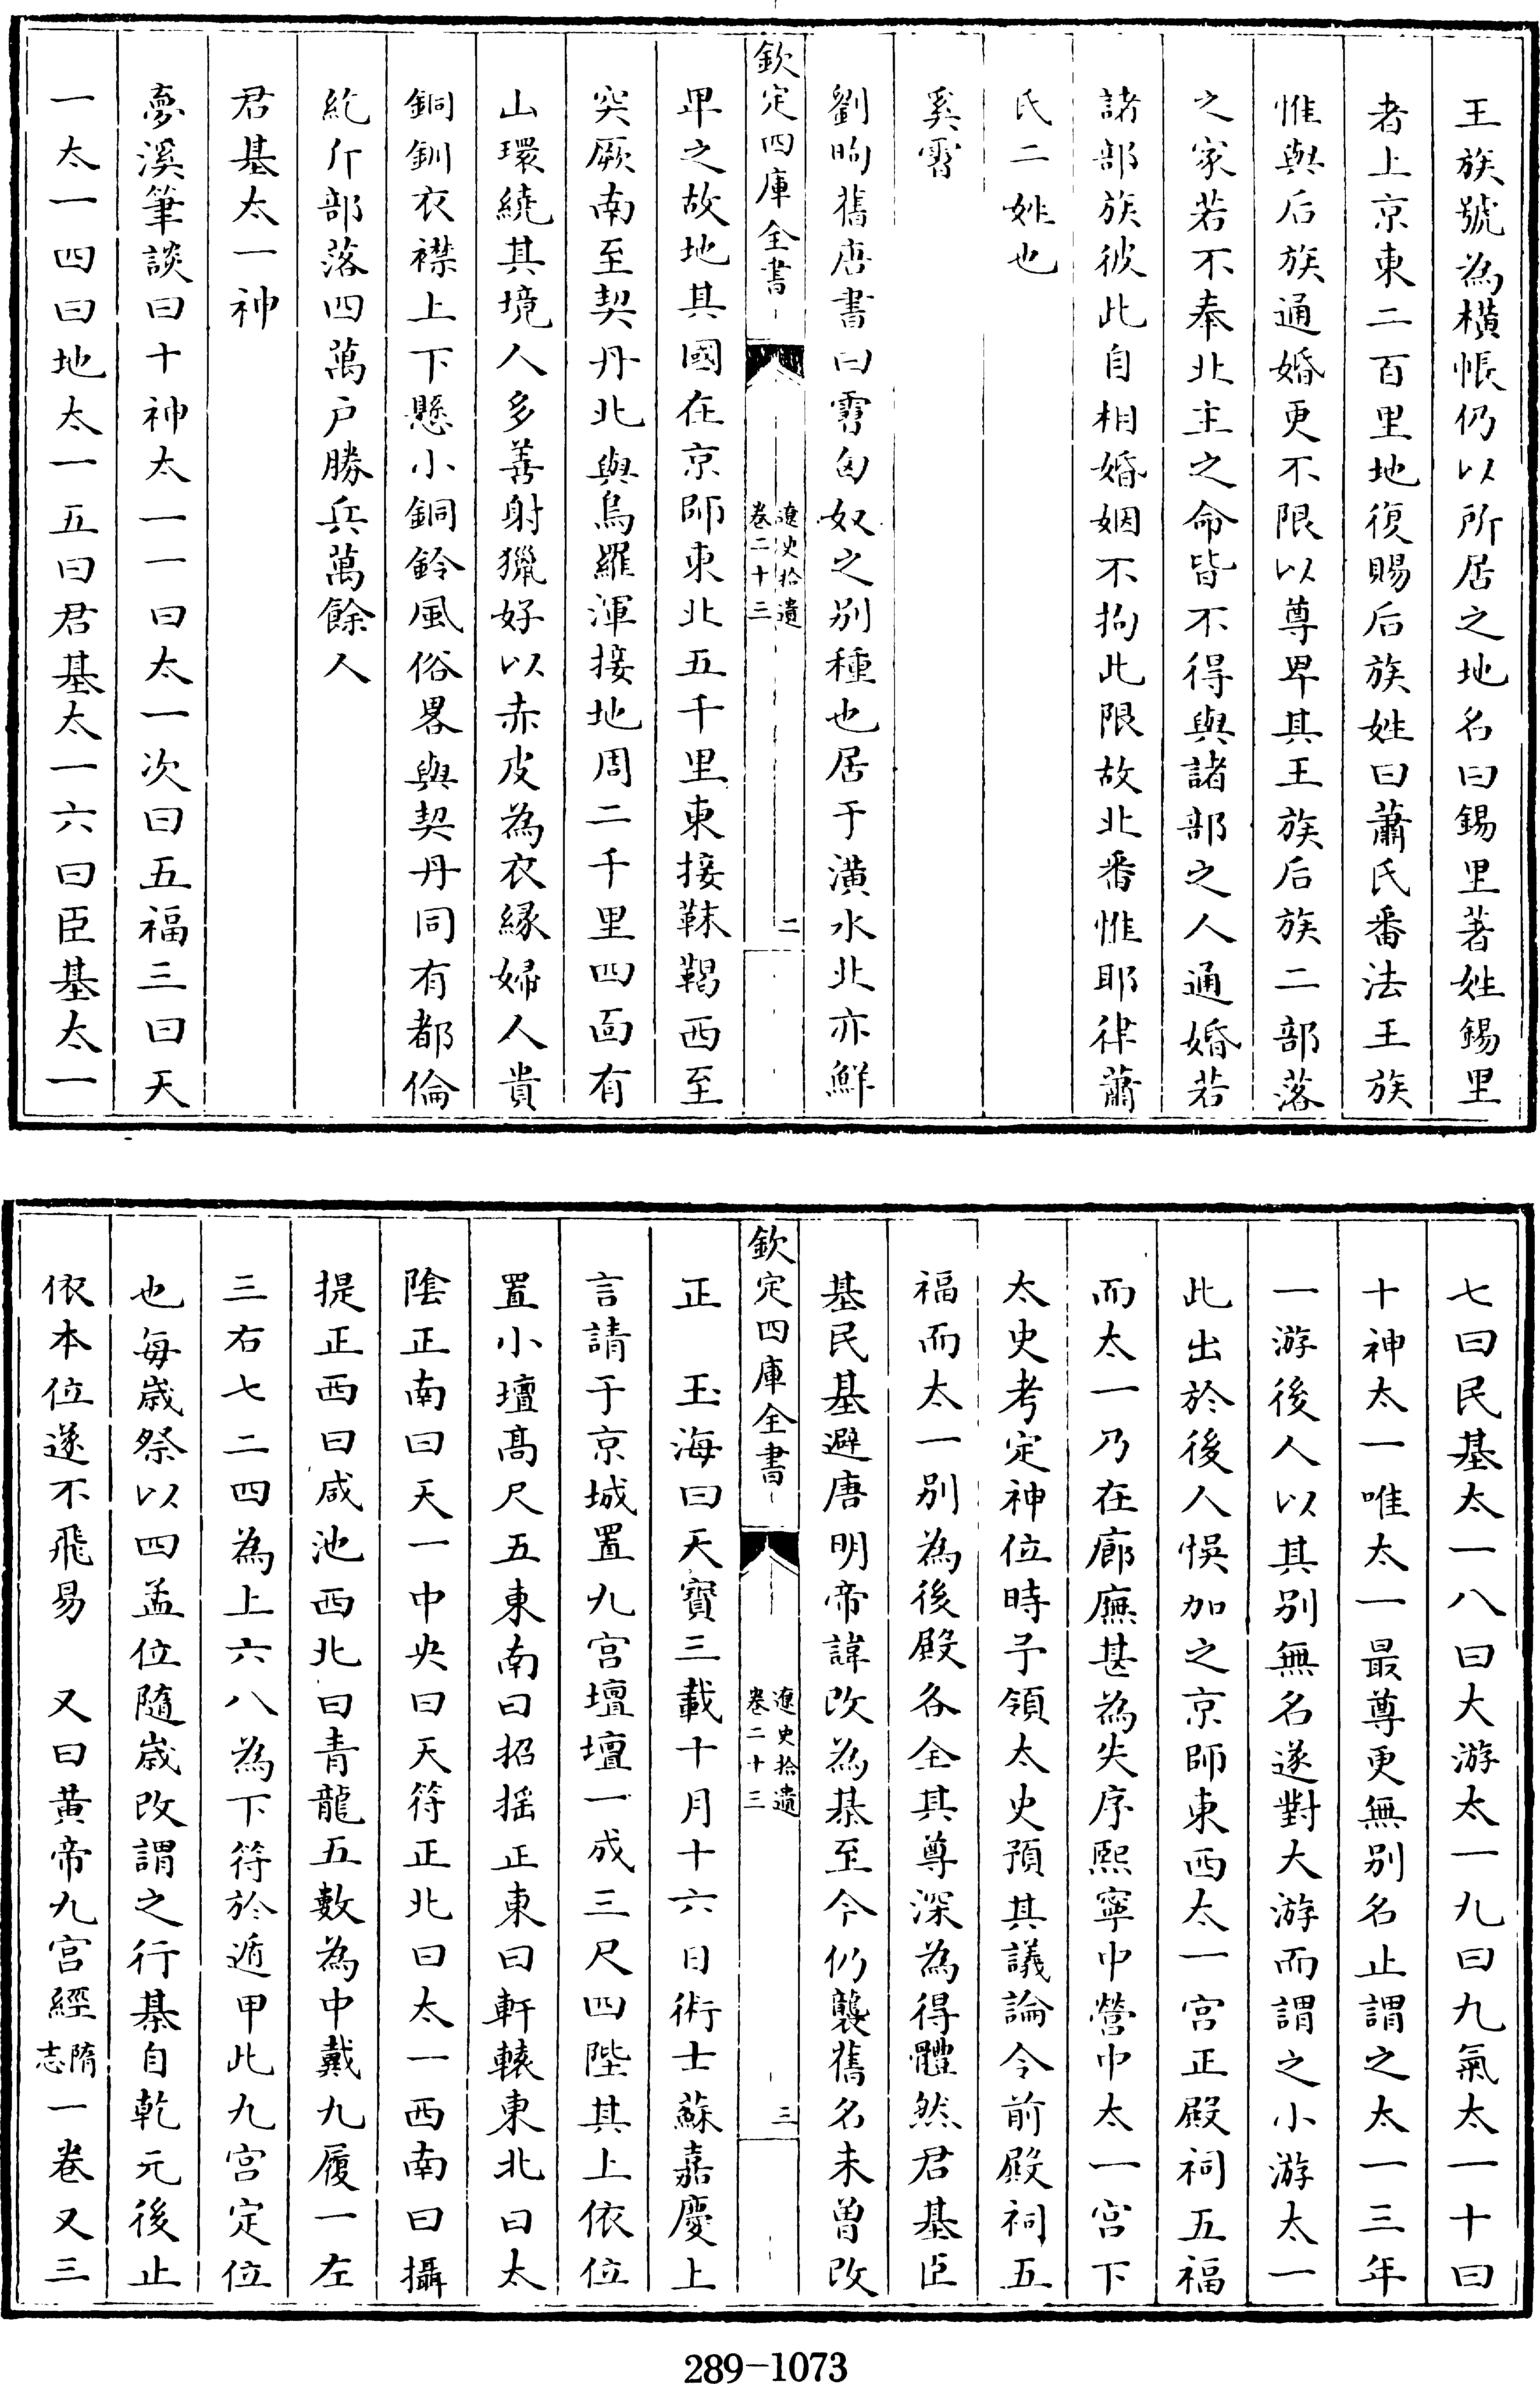 王族號為橫帳仍以所居之地名曰錫里著姓錫里
者上京東二百里地復賜后族姓曰蕭氏番法王族
惟與后族通婚更不限以尊卑其王族后族二部落
之家若不奉北主之命皆不得與諸部之人通婚若
諸部族彼此自相婚姻不拘此限故北番惟耶律蕭
氏二姓也
奚霫
劉昫舊唐書曰霫匈奴之别種也居于潢水北亦鮮
欽定四庫全書
遼史拾遺
卷二十三
二
卑之故地其國在京師東北五千里東接靺鞨西至
突厥南至契丹北與烏羅渾接地周二千里四面有
山環繞其境人多善射獵好以赤皮為衣緣婦人貴
銅釧衣襟上下懸小銅鈴風俗畧與契丹同有都倫
紇斤部落四萬户勝兵萬餘人
君基太一神
夢溪筆談曰十神太一一曰太一次曰五福三曰天
一太一四曰地太一五曰君基太一六曰臣基太一
七曰民基太一八曰大游太一九曰九氣太一十曰
十神太一唯太一最尊更無别名止謂之太一三年
一游後人以其别無名遂對大游而謂之小游太一
此出於後人悞加之京師東西太一宫正殿祠五福
而太一乃在廊廡甚為失序熙寧中營中太一宫下
太史考定神位時予領太史預其議論今前殿祠五
福而太一别為後殿各全其尊深為得體然君基臣
基民基避唐明帝諱改為棊至今仍襲舊名未曾改
欽定四庫全書
遼史拾遺
卷二十三
三
正　玉海曰天寳三載十月十六日術士蘇嘉慶上
言請于京城置九宫壇壇一成三尺四陛其上依位
置小壇髙尺五東南曰招摇正東曰軒轅東北曰太
陰正南曰天一中央曰天符正北曰太一西南曰攝
提正西曰咸池西北曰青龍五數為中戴九履一左
三右七二四為上六八為下符於遁甲此九宫定位
也每嵗祭以四孟位隨嵗改謂之行棊自乾元後止
依本位遂不飛易　又曰黄帝九宫經隋志一卷又三
289-1073